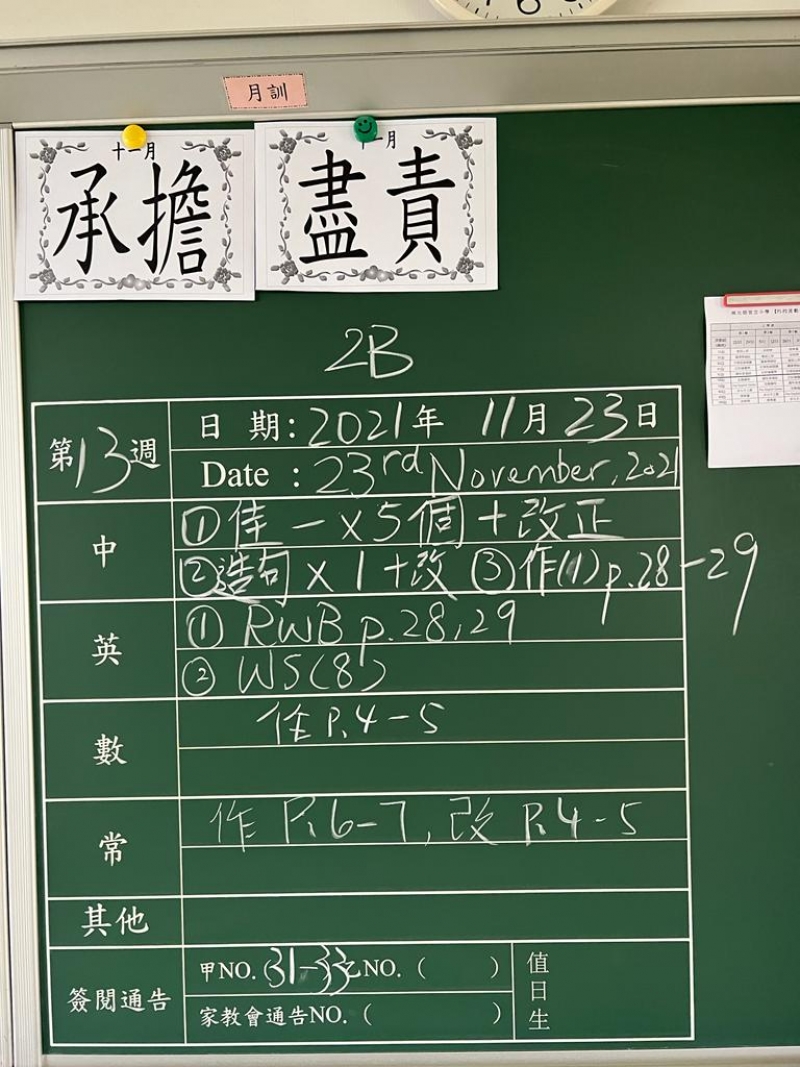 月訓
十一月
承擔
一月
盡責
2B
第13週
日 期: 2021年 11月 23日
Date : 23rd November, 2021
中
① 佳一 x 5個 + 改正
② 造句 x 1 + 改 ③ 作(1) p.28-29
英
① RWB p.28,29
② WS(8)
數
作 P.4-5
常
作 P.6-7, 改 P.4-5
其他
簽閱通告
甲NO.(31-33)
NO. ( )
家教會通告NO. ( )
值日生